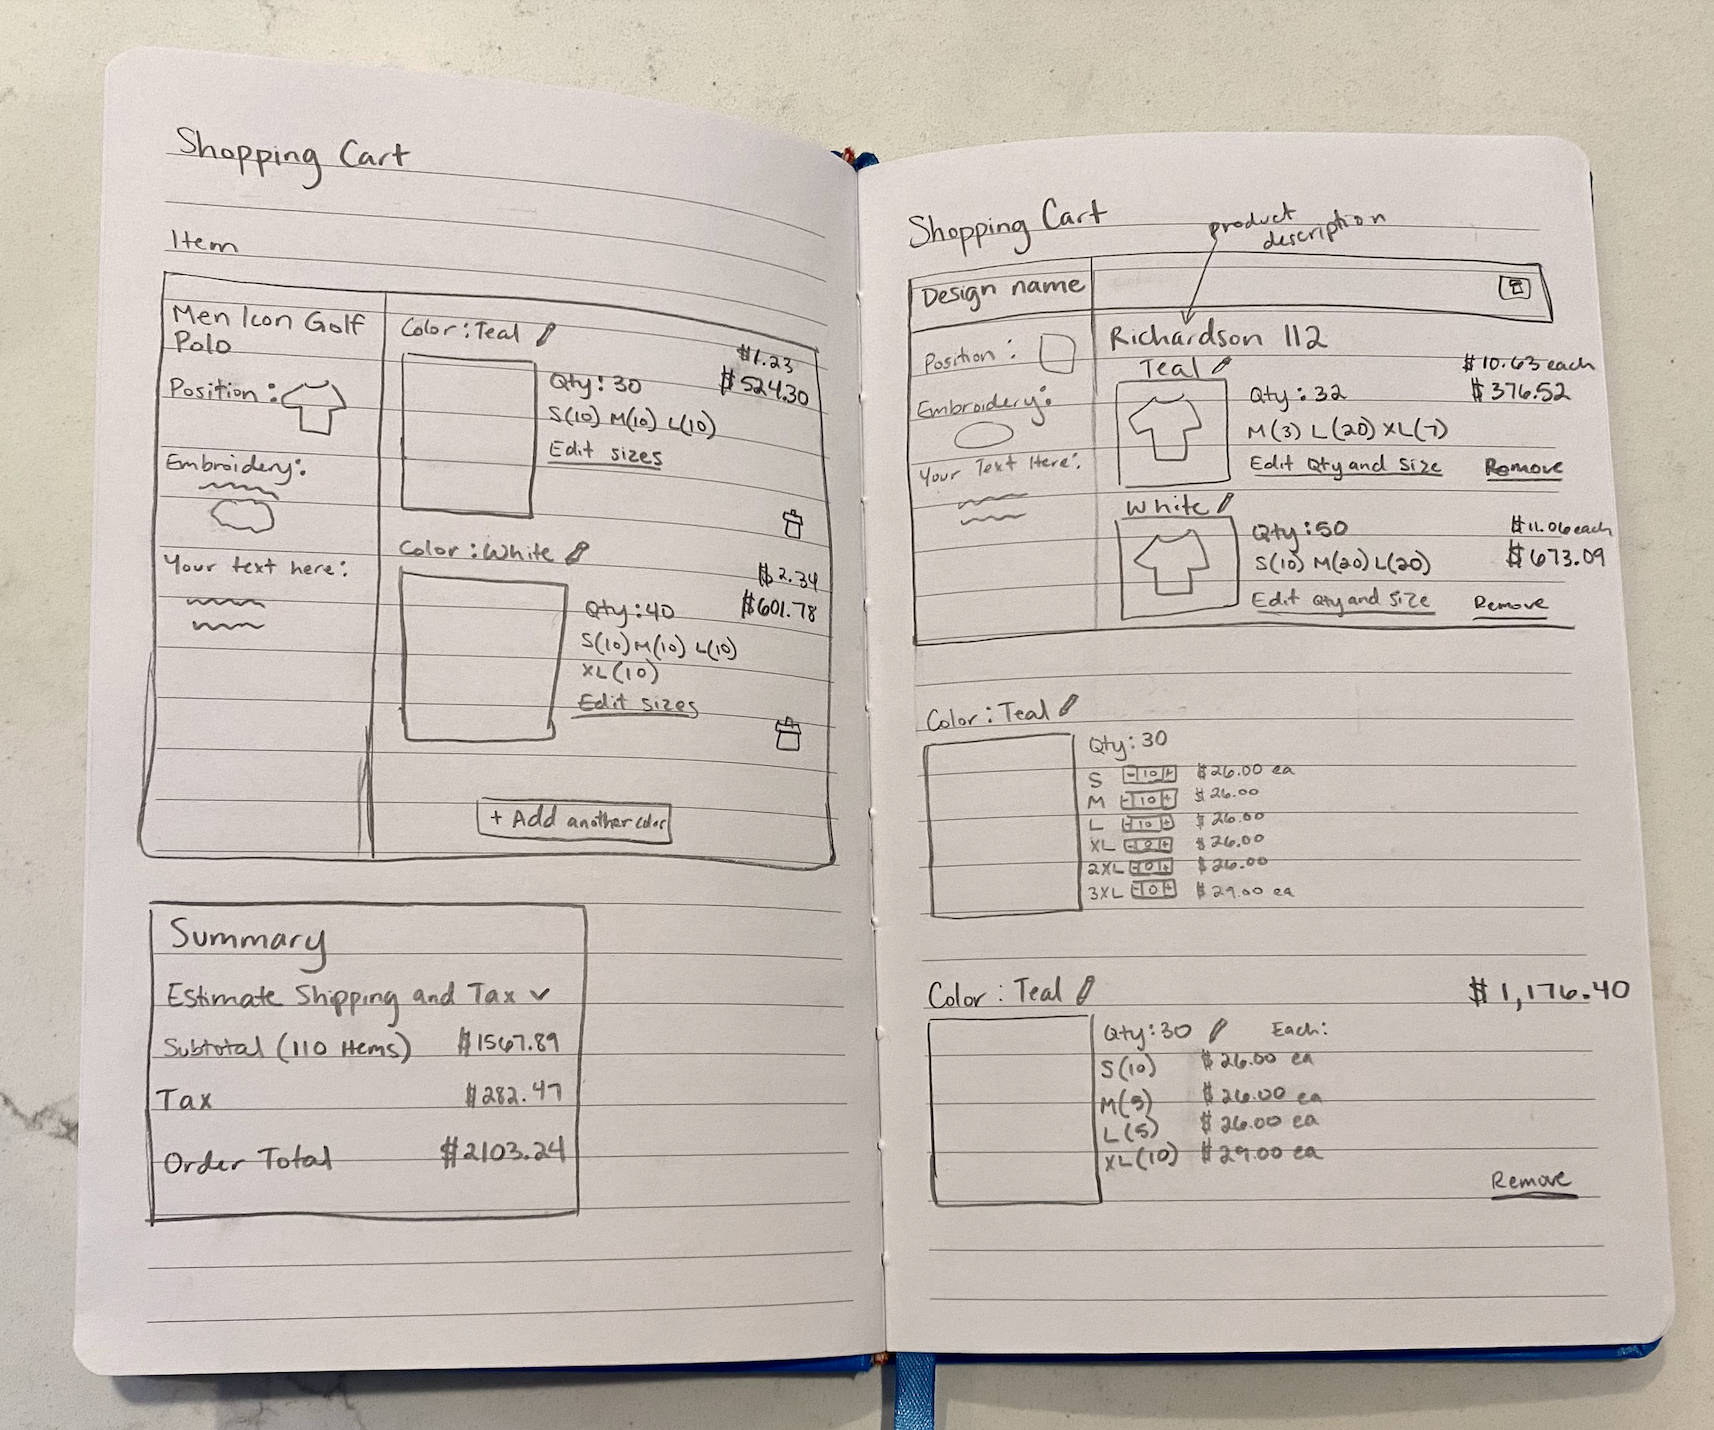 Shopping Cart
Item
Men Icon Golf
Polo
Position :
Embroidery:
Your text here:
Color: Teal
$1.23
$524.30
Qty: 30
S(10) M(10) L(10)
Edit sizes
Color: White
$2.34
$601.78
Qty: 40
S(10) M(10) L(10)
XL(10)
Edit sizes
+ Add another color
Summary
Estimate Shipping and Tax
Subtotal (110 items) $1567.89
Tax $282.47
Order Total $2103.24
Shopping Cart
product
description
Design name
Position :
Embroidery:
Your Text Here:
Richardson 112
Teal
$10.63 each
$376.52
Qty: 32
M(3) L(20) XL(7)
Edit Qty and Size Remove
White
$11.06 each
$673.09
Qty: 50
S(10) M(20) L(20)
Edit Qty and Size Remove
Color: Teal
Qty: 30
S - 10 + $26.00 ea
M - 10 + $26.00
L - 10 + $26.00
XL - 0 + $26.00
2XL - 0 + $26.00
3XL - 0 + $29.00 ea
Color: Teal $1,176.40
Qty: 30 Each:
S(10) $26.00 ea
M(5) $26.00 ea
L(5) $26.00 ea
XL(10) $29.00 ea
Remove